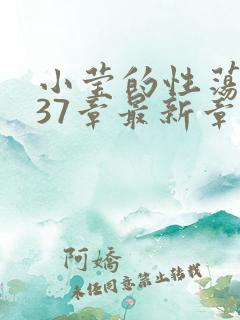 小莹的性荡
37章最新章
阿娇
未经同意禁止转载